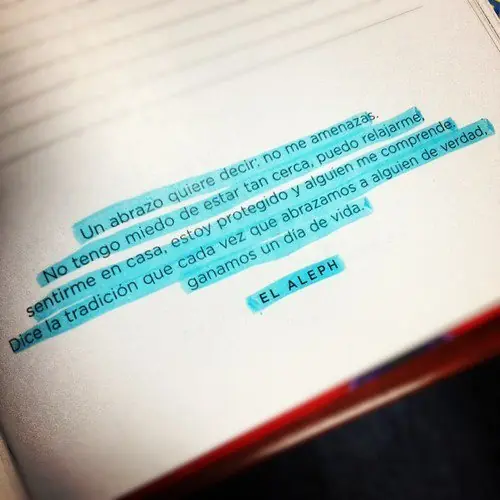 Un abrazo quiere decir: no me amenazas.
No tengo miedo de estar tan cerca, puedo relajarme,
sentirme en casa, estoy protegido y alguien me comprende.
Dice la tradición que cada vez que abrazamos a alguien de verdad,
ganamos un día de vida.
EL ALEPH